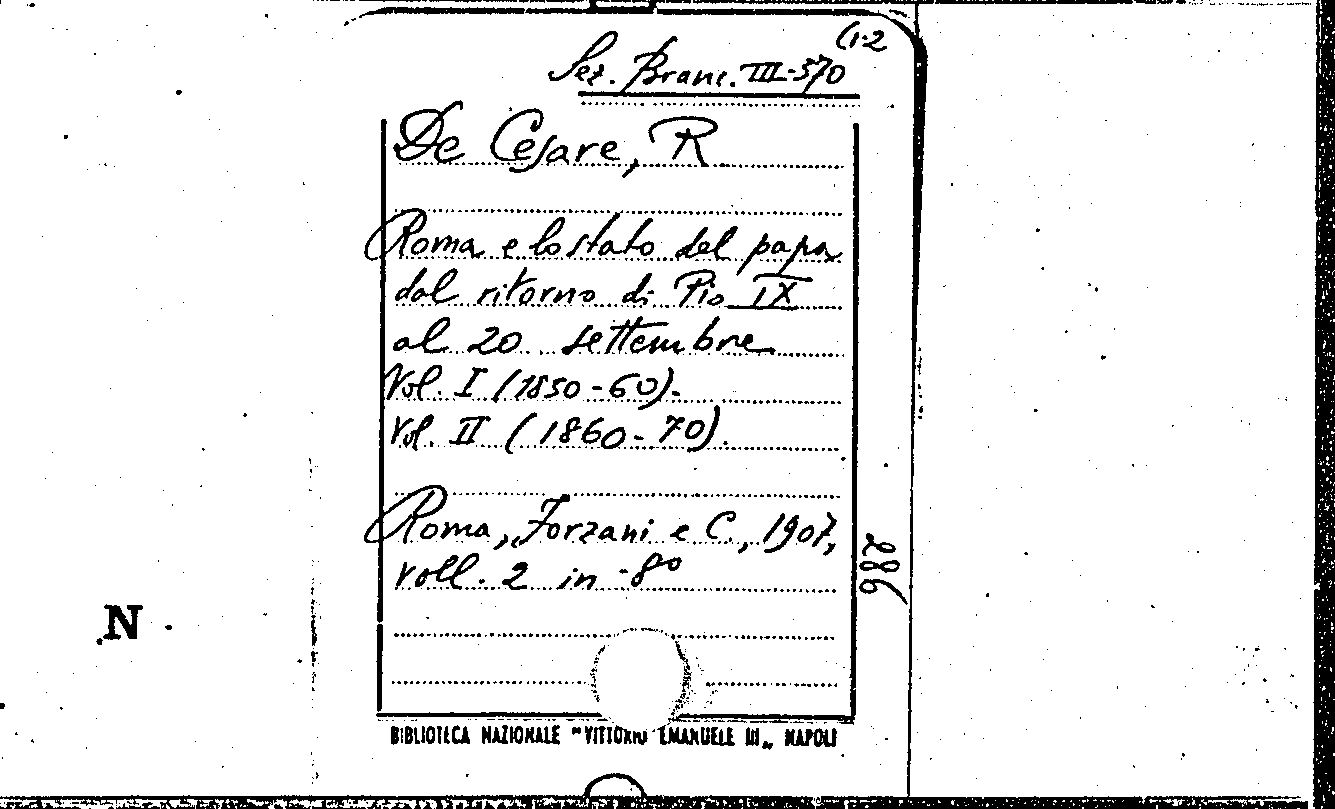 (1-2
Sez. Branc. III-370
De Cesare, R.
Roma e lo stato del papa
dal ritorno di Pio IX
al 20 settembre
Vol. I (1850-60).
Vol. II (1860-70).
Roma, Forzani e C., 1907,
voll. 2 in -8°
986
N
BIBLIOTECA NAZIONALE "VITTORIO EMANUELE III„ NAPOLI